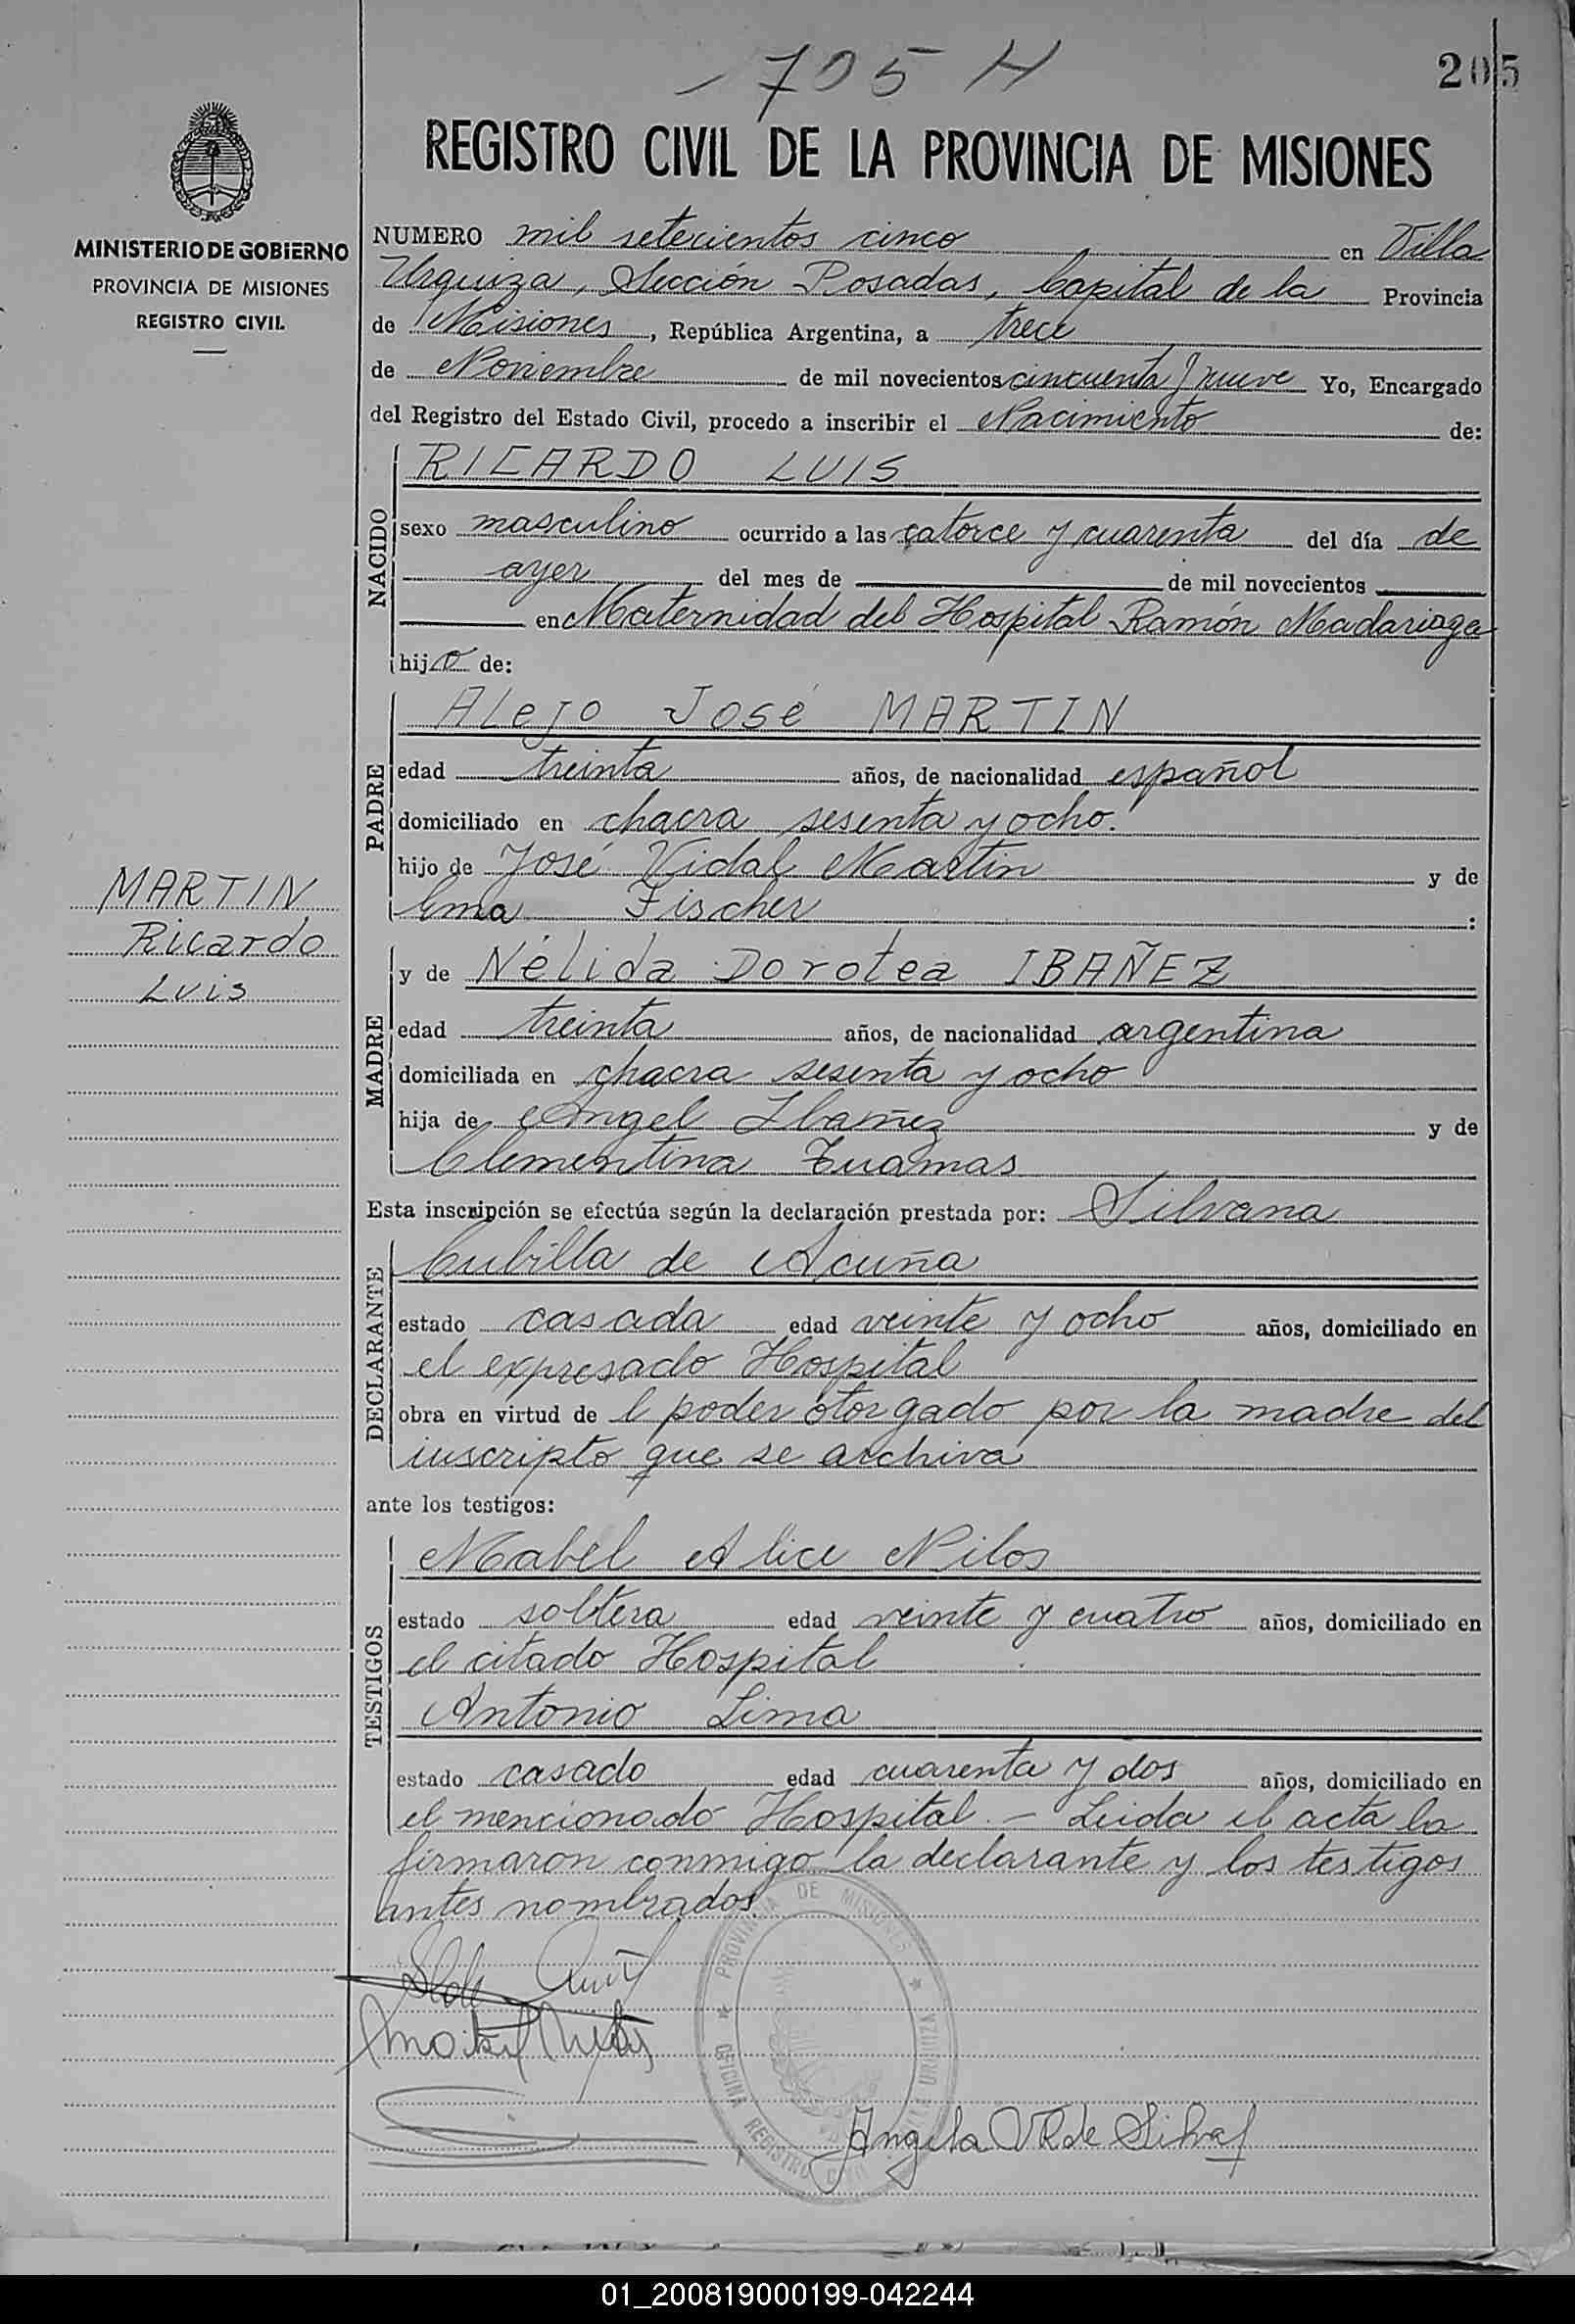 1705 H
205
REGISTRO CIVIL DE LA PROVINCIA DE MISIONES
MINISTERIO DE GOBIERNO
PROVINCIA DE MISIONES
REGISTRO CIVIL
NUMERO mil setecientos cinco en Villa
Urquiza, Sección Posadas, Capital de la Provincia
de Misiones, República Argentina, a trece
de Noviembre de mil novecientos cincuenta y nueve Yo, Encargado
del Registro del Estado Civil, procedo a inscribir el Nacimiento de:
NACIDO
RICARDO LUIS
sexo masculino ocurrido a las catorce y cuarenta del día de
ayer del mes de de mil novecientos
en Maternidad del Hospital Ramón Madariaga
hijo de:
PADRE
Alejo José MARTIN
edad treinta años, de nacionalidad español
domiciliado en chacra sesenta y ocho.
hijo de José Vidal Martin y de
Ema Fischer :
MARTIN
Ricardo
Luis
MADRE
y de Nélida Dorotea IBAÑEZ
edad treinta años, de nacionalidad argentina
domiciliada en chacra sesenta y ocho
hija de Angel Ibañez y de
Clementina
Esta inscripción se efectúa según la declaración prestada por: Silvana
DECLARANTE
Cubilla de Acuña
estado casada edad veinte y ocho años, domiciliado en
el expresado Hospital
obra en virtud de l poder otorgado por la madre del
inscripto que se archiva
ante los testigos:
TESTIGOS
Mabel Alice Nilos
estado soltera edad veinte y cuatro años, domiciliado en
el citado Hospital
Antonio Lima
estado casado edad cuarenta y dos años, domiciliado en
el mencionado Hospital.- Leida el acta la
firmaron conmigo la declarante y los testigos
antes nombrados.
PROVINCIA DE MISIONES
OFICINA REGISTRO CIVIL VILLA URQUIZA
Angela V R de Silva
01_200819000199-042244